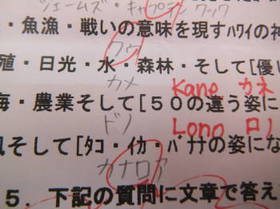 ジェームズ・キャプテン クック
・魚漁・戦いの意味を現すハワイの神
クウ
殖・日光・水・森林・そして[優し
カメ Kane カネ
海・農業そして[50の違う姿に
ドノ Lono ロノ
風そして[タコ・イカ・バナナの姿にな
カナロア
5. 下記の質問に文章で答え